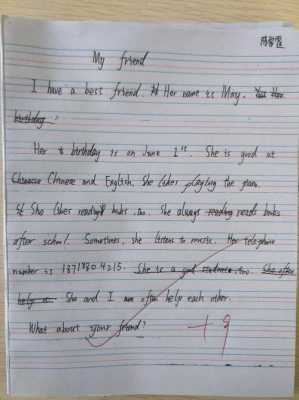 My friend
I have a best friend. Her name is May.
birthday
Her birthday is on June 1st. She is good at
Chinese and English. She likes playing the piano.
She likes reading books too. She always reading reads books
after school. Sometimes, she listens to music. Her telephone
number is 13719804215. She is a good too. She often
help She and I often help each other.
What about your friend?
+9